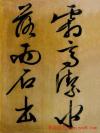 霜高潔水
落而石出